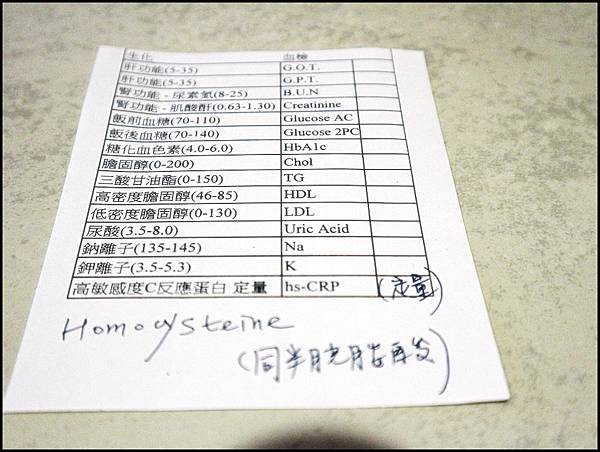 生化 血檢
肝功能(5-35) G.O.T.
肝功能(5-35) G.P.T.
腎功能 - 尿素氮(8-25) B.U.N
腎功能 - 肌酸酐(0.63-1.30) Creatinine
飯前血糖(70-110) Glucose AC
飯後血糖(70-140) Glucose 2PC
糖化血色素(4.0-6.0) HbA1c
膽固醇(0-200) Chol
三酸甘油酯(0-150) TG
高密度膽固醇(46-85) HDL
低密度膽固醇(0-130) LDL
尿酸(3.5-8.0) Uric Acid
鈉離子(135-145) Na
鉀離子(3.5-5.3) K
高敏感度C反應蛋白 定量 hs-CRP (定量)
Homocysteine
(同半胱